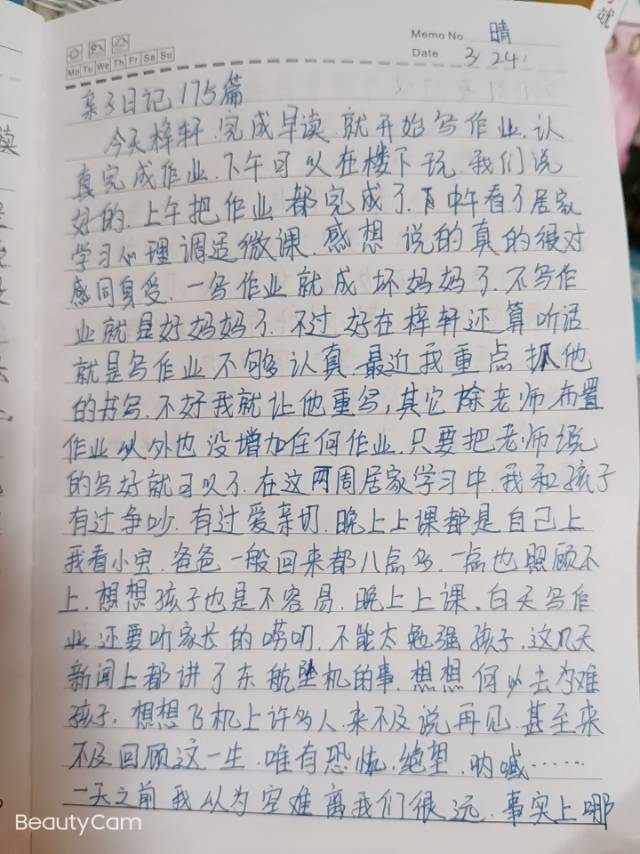 就
Memo No. 晴
Mo Tu We Th Fr Sa Su
Date 3/24
亲子日记175篇
今天梓轩.完成早读就开始写作业.认
真完成作业.下午可以在楼下玩.我们说
好的.上午把作业都完成了.中午看了居家
学习心理调适微课.感想说的真的很对
感同身受.一写作业就成坏妈妈了.不写作
业就是好妈妈了.不过好在梓轩还算听话
就是写作业不够认真.最近我重点抓他
的书写.不好我就让他重写,其它除老师布置
作业以外也没增加任何作业.只要把老师说
的写好就可以了.在这两周居家学习中.我和孩子
有过争吵.有过爱亲切.晚上上课都是自己上
我看小宝.爸爸一般回来都八点多.一点也照顾不
上.想想孩子也是不容易.晚上上课.白天写作
业.还要听家长的唠叨.不能太勉强孩子.这几天
新闻上都讲了东航坠机的事.想想何必去为难
孩子.想想飞机上许多人来不及说再见.甚至来
不及回顾这一生.唯有恐怖.绝望.呐喊……
一天之前我以为空难离我们很远.事实上哪
BeautyCam